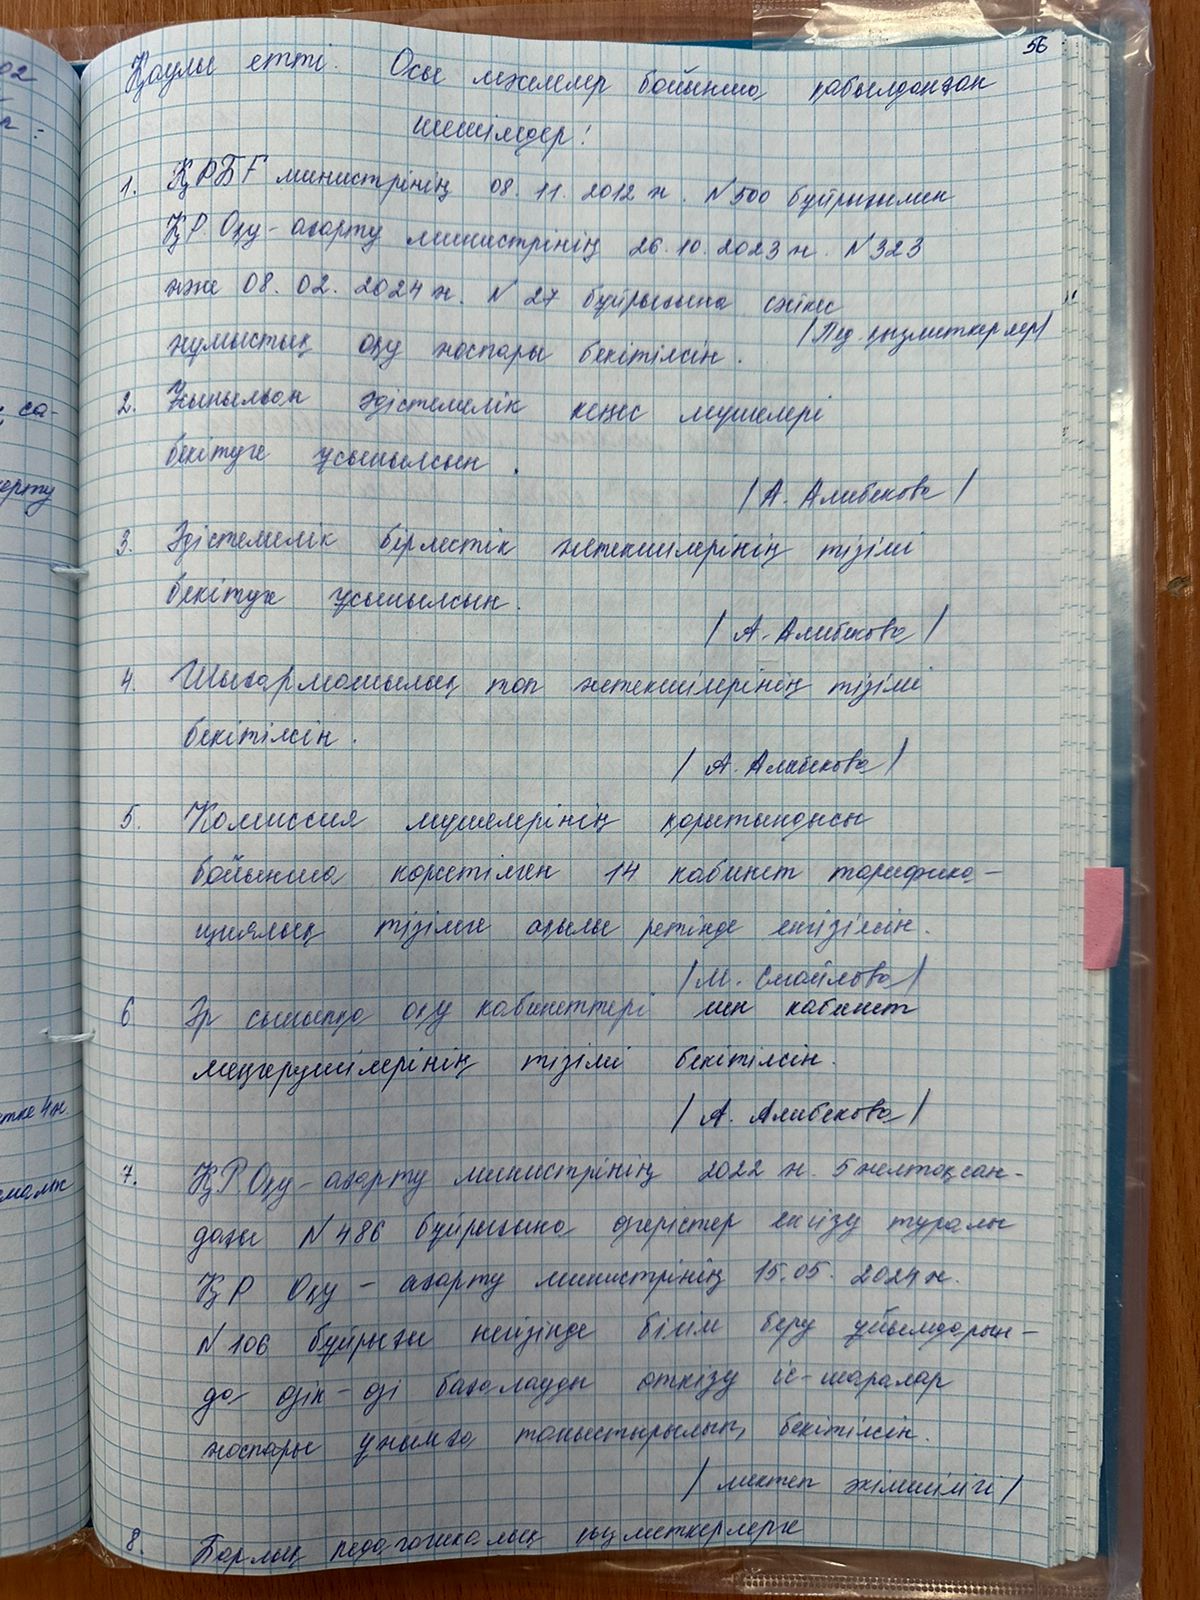 56
Қаулы етті: Осы мәселелер бойынша қабылданған
шешімдер!
1. ҚР БҒ министрінің 08. 11. 2012 ж. №500 бұйрығымен
ҚР. Оқу-ағарту министрінің 26. 10. 2023 ж. №323
және 08. 02. 2024 ж. №27 бұйрығына сәйкес
жұмыстық оқу жоспары бекітілсін.
/Пед. қызметкерлер/
2. Ұсынылған әдістемелік кеңес мүшелері
бекітуге ұсынылсын.
/А. Алибекова/
3. Әдістемелік бірлестік жетекшілерінің тізімі
бекітуге ұсынылсын.
/А. Алибекова/
4. Шығармашылық топ жетекшілерінің тізімі
бекітілсін.
/А. Алибекова/
5. Комиссия мүшелерінің қорытындысы
бойынша көрсетілген 14 кабинет тарифика-
циялық тізімге ақылы ретінде енгізілсін.
/М. Смайлова/
6 Әр сыныпқа оқу кабинеттері мен кабинет
меңгерушілерінің тізімі бекітілсін.
/А. Алибекова/
7. ҚР. Оқу-ағарту министрінің 2022 ж. 5 желтоқсан-
дағы №486 бұйрығына өзгерістер енгізу туралы
ҚР Оқу-ағарту министрінің 15.05. 2024 ж.
№106 бұйрығы негізінде білім беру ұйымдарын-
да өзін-өзі бағалауды өткізу іс-шаралар
жоспары ұжымға таныстырылып, бекітілсін.
/мектеп әкімшілігі/
8. Барлық педагогикалық қызметкерлерге